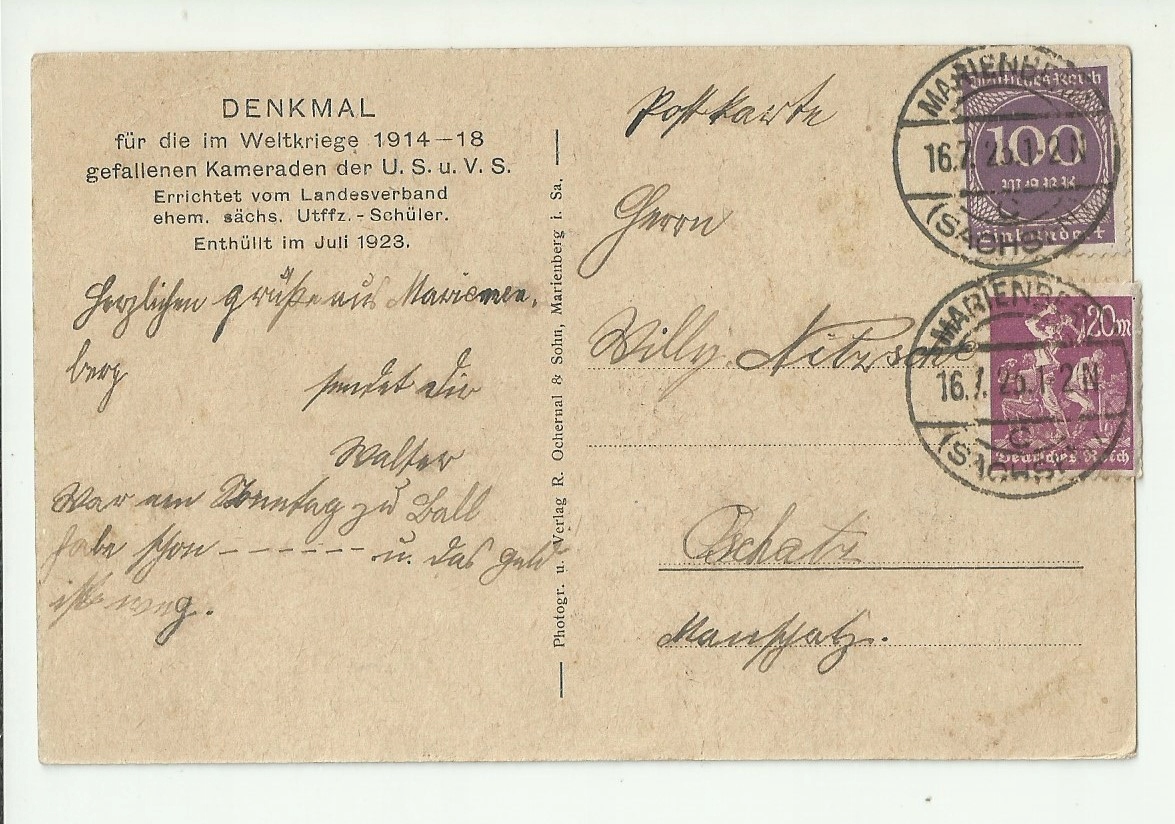 DENKMAL
für die im Weltkriege 1914-18
gefallenen Kameraden der U. S. u. V. S.
Errichtet vom Landesverband
ehem. sächs. Utffz.-Schüler.
Enthüllt im Juli 1923.
Herzlichen Grüße aus Marienen.
berg
sendet Dir
Walter
War am Sonntag zu Ball
habe schon ------ u. das Geld
ist weg.
Photogr. u. Verlag R. Ochernal & Sohn, Marienberg i. Sa.
Postkarte
Herrn
Willy Nitzsche
Oschatz
Manschatz.
MARIENBERG
16.7.23.1-2N
C
(SACHS)
Deutsches Reich
100
Mark
Einhundert
MARIENBERG
16.7.23.1-2N
C
(SACHS)
120m
Deutsches Reich